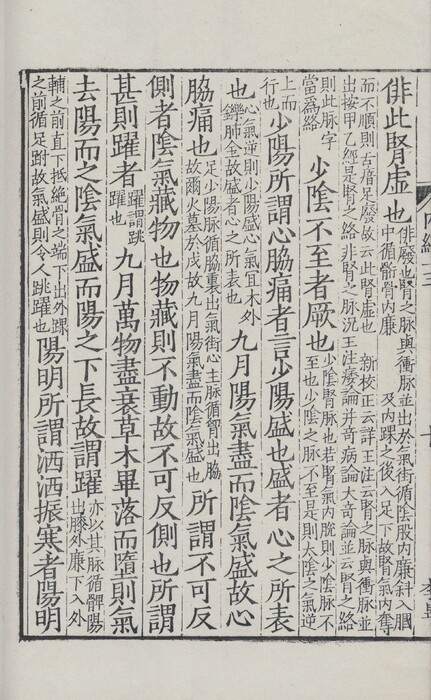 俳此腎虛也俳廢也腎之脈與衝脈並出於氣街循陰股內廉斜入膕中循䯒骨內廉及內踝之後入足下故腎氣內奪
而不順則舌瘖足廢故云此腎虛也 新校正云詳王注云腎之脈與衝脈並出按甲乙經是腎之絡非腎之脈況王注痿論并奇病論大奇論並云腎之絡
則此脈字當爲絡 少陰不至者厥也少陰腎脈也若腎氣內脫則少陰脈不至也少陰之脈不至是則太陰之氣逆
上而行也少陽所謂心脇痛者言少陽盛也盛者心之所表
也心氣逆則少陽盛心氣宜木外鑠肺金故盛者心之所表也九月陽氣盡而陰氣盛故心
脇痛也足少陽脈循脇裏出氣街心主脈循胷出脇故爾火墓於戌故九月陽氣盡而陰氣盛也所謂不可反
側者陰氣藏物也物藏則不動故不可反側也所謂
甚則躍者躍謂跳躍也九月萬物盡衰草木畢落而墮則氣
去陽而之陰氣盛而陽之下長故謂躍亦以其脈循髀陽出膝外廉下入外
輔之前直下抵絕骨之端下出外踝之前循足跗故氣盛則令人跳躍也陽明所謂洒洒振寒者陽明